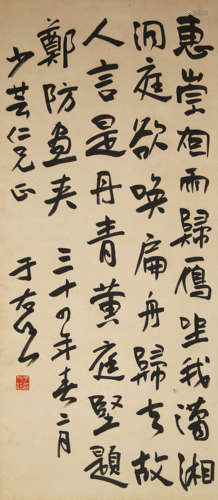 惠崇烟雨歸雁坐我瀟湘
洞庭欲喚扁舟歸去故
人言是丹青黄庭堅題
鄭防畫夾 三十四年春二月
少芸仁兄正 于右任